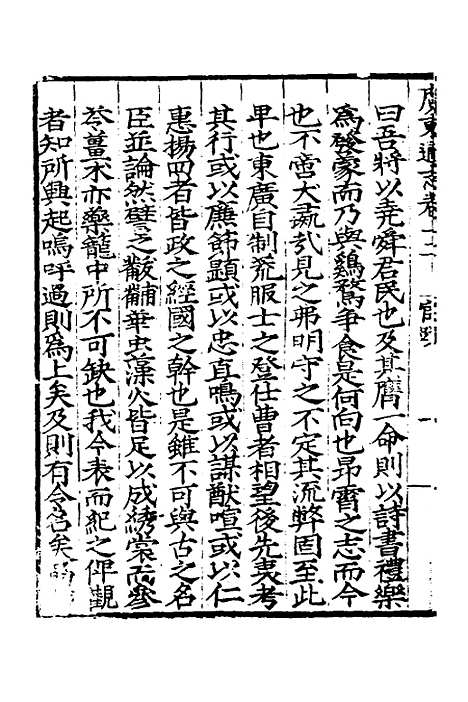 廣東通志卷十二　一
曰吾將以堯舜君民也及其膺一命則以詩書禮樂
為發蒙而乃與鷄鶩爭食是何向也昻霄之志而今
也不啻大疏哉見之弗明守之不定其流弊固至此
早也東廣自制荒服士之登仕曹者相望後先夷考
其行或以廉節顯或以忠直鳴或以謀猷喧或以仁
惠揚四者皆政之經國之幹也是雖不可與古之名
臣並論然譬之黻黼華虫藻火皆足以成綉裳而參
苓薑木亦藥籠中所不可缺也我今表而紀之俾觀
者知所興起嗚呼過則為上矣及則有令名矣